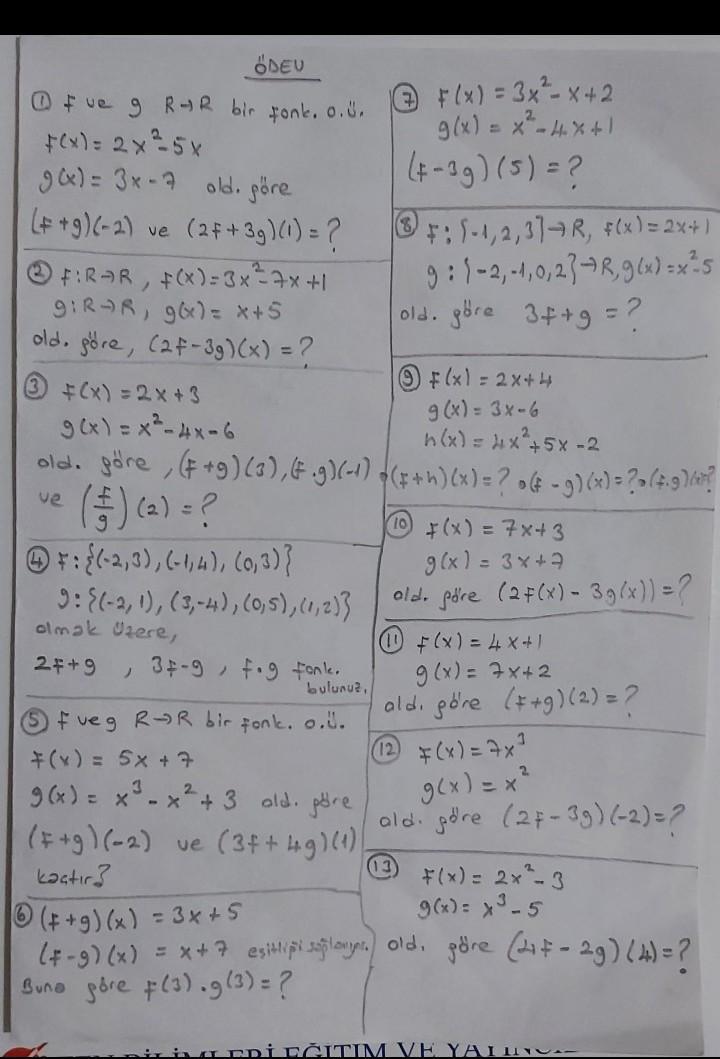 ÖDEV
① f ve g R→R bir fonk. o.ü.
f(x) = 2x²-5x
g(x) = 3x-7 old. göre
(f+g)(-2) ve (2f+3g)(1) = ?
② f: R→R, f(x)=3x²-7x+1
g: R→R, g(x) = x+5
old. göre, (2f-3g)(x) = ?
③ f(x) = 2x+3
g(x) = x²-4x-6
old. göre, (f+g)(3), (f.g)(-1)
ve (f/g)(2) = ?
④ f: {(-2,3), (-1,4), (0,3)}
g: {(-2,1), (3,-4), (0,5), (1,2)}
olmak üzere,
2f+g , 3f-g , f.g fonk.
bulunuz.
⑤ f ve g R→R bir fonk. o.ü.
f(x) = 5x+7
g(x) = x³-x²+3 old. göre
(f+g)(-2) ve (3f+4g)(1)
kaçtır?
⑥ (f+g)(x) = 3x+5
(f-g)(x) = x+7 eşitliği sağlanıyor.
Buna göre f(3).g(3) = ?
⑦ f(x) = 3x²-x+2
g(x) = x²-4x+1
(f-3g)(5) = ?
⑧ f: {-1,2,3}→R, f(x)=2x+1
g: {-2,-1,0,2}→R, g(x)=x²-5
old. göre 3f+g = ?
⑨ f(x) = 2x+4
g(x) = 3x-6
h(x) = 4x²+5x-2
•(f+h)(x)=? •(f-g)(x)=? •(f.g)(x)=?
⑩ f(x) = 7x+3
g(x) = 3x+7
old. göre (2f(x)-3g(x)) = ?
⑪ f(x) = 4x+1
g(x) = 7x+2
old. göre (f+g)(2) = ?
⑫ f(x) = 7x³
g(x) = x²
old. göre (2f-3g)(-2) = ?
⑬ f(x) = 2x²-3
g(x) = x³-5
old. göre (4f-2g)(4) = ?
BİLİMLERİ EĞİTİM VE